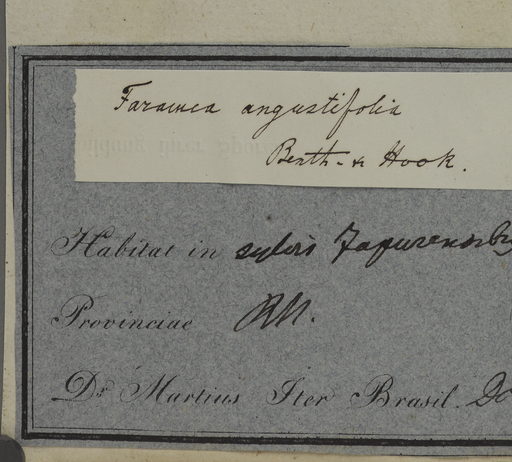 Faramea angustifolia
Benth. & Hook.
Habitat in sylvis Japurensib
Provinciae RN.
Dr. Martius Iter Brasil.